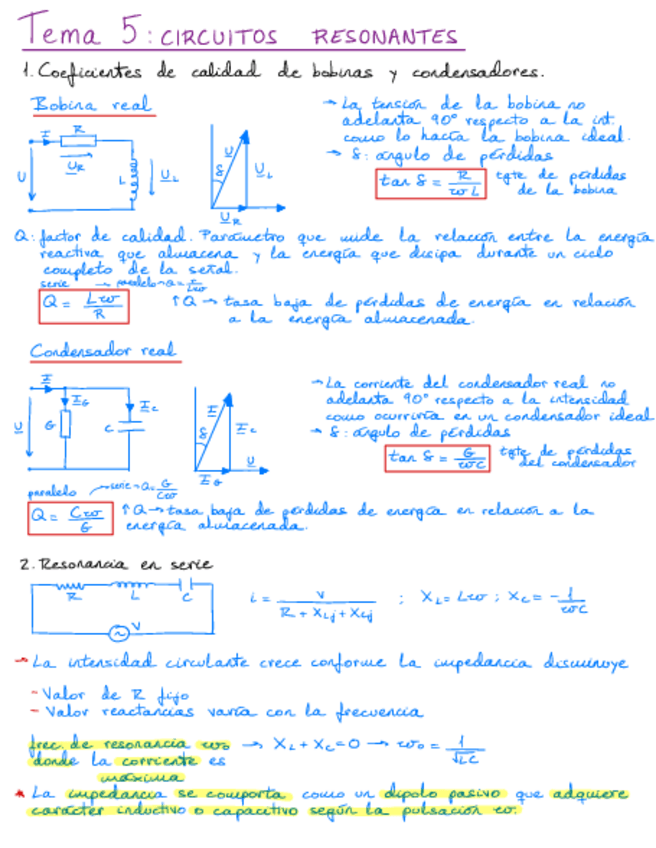 Tema 5: CIRCUITOS RESONANTES
1. Coeficientes de calidad de bobinas y condensadores.
Bobina real
→ La tensión de la bobina no
adelanta 90° respecto a la int.
como lo hacía la bobina ideal.
→ δ: ángulo de pérdidas
tan δ = R / ωL
tgte de pérdidas
de la bobina
I R
U U_R L U_L
δ U U_L
U_R
Q: factor de calidad. Parámetro que mide la relación entre la energía
reactiva que almacena y la energía que disipa durante un ciclo
completo de la señal.
serie → paralelo → Q = r / Lω
Q = Lω / R
↑Q → tasa baja de pérdidas de energía en relación
a la energía almacenada.
Condensador real
I
U I_G G I_C C
δ I I_C
I_G U
→ La corriente del condensador real no
adelanta 90° respecto a la intensidad
como ocurriría en un condensador ideal
→ δ: ángulo de pérdidas
tan δ = G / ωC
tgte de pérdidas
del condensador
paralelo → serie → Q = G / Cω
Q = Cω / G
↑Q → tasa baja de pérdidas de energía en relación a la
energía almacenada.
2. Resonancia en serie
R L C
V
i = V / R + XLj + XCj ; XL = Lω ; XC = - 1 / ωC
→ La intensidad circulante crece conforme la impedancia disminuye
- Valor de R fijo
- Valor reactancias varía con la frecuencia
frec. de resonancia ω₀ → XL + XC = 0 → ω₀ = 1 / √LC
donde la corriente es
máxima
* La impedancia se comporta como un dipolo pasivo que adquiere
carácter inductivo o capacitivo según la pulsación ω.